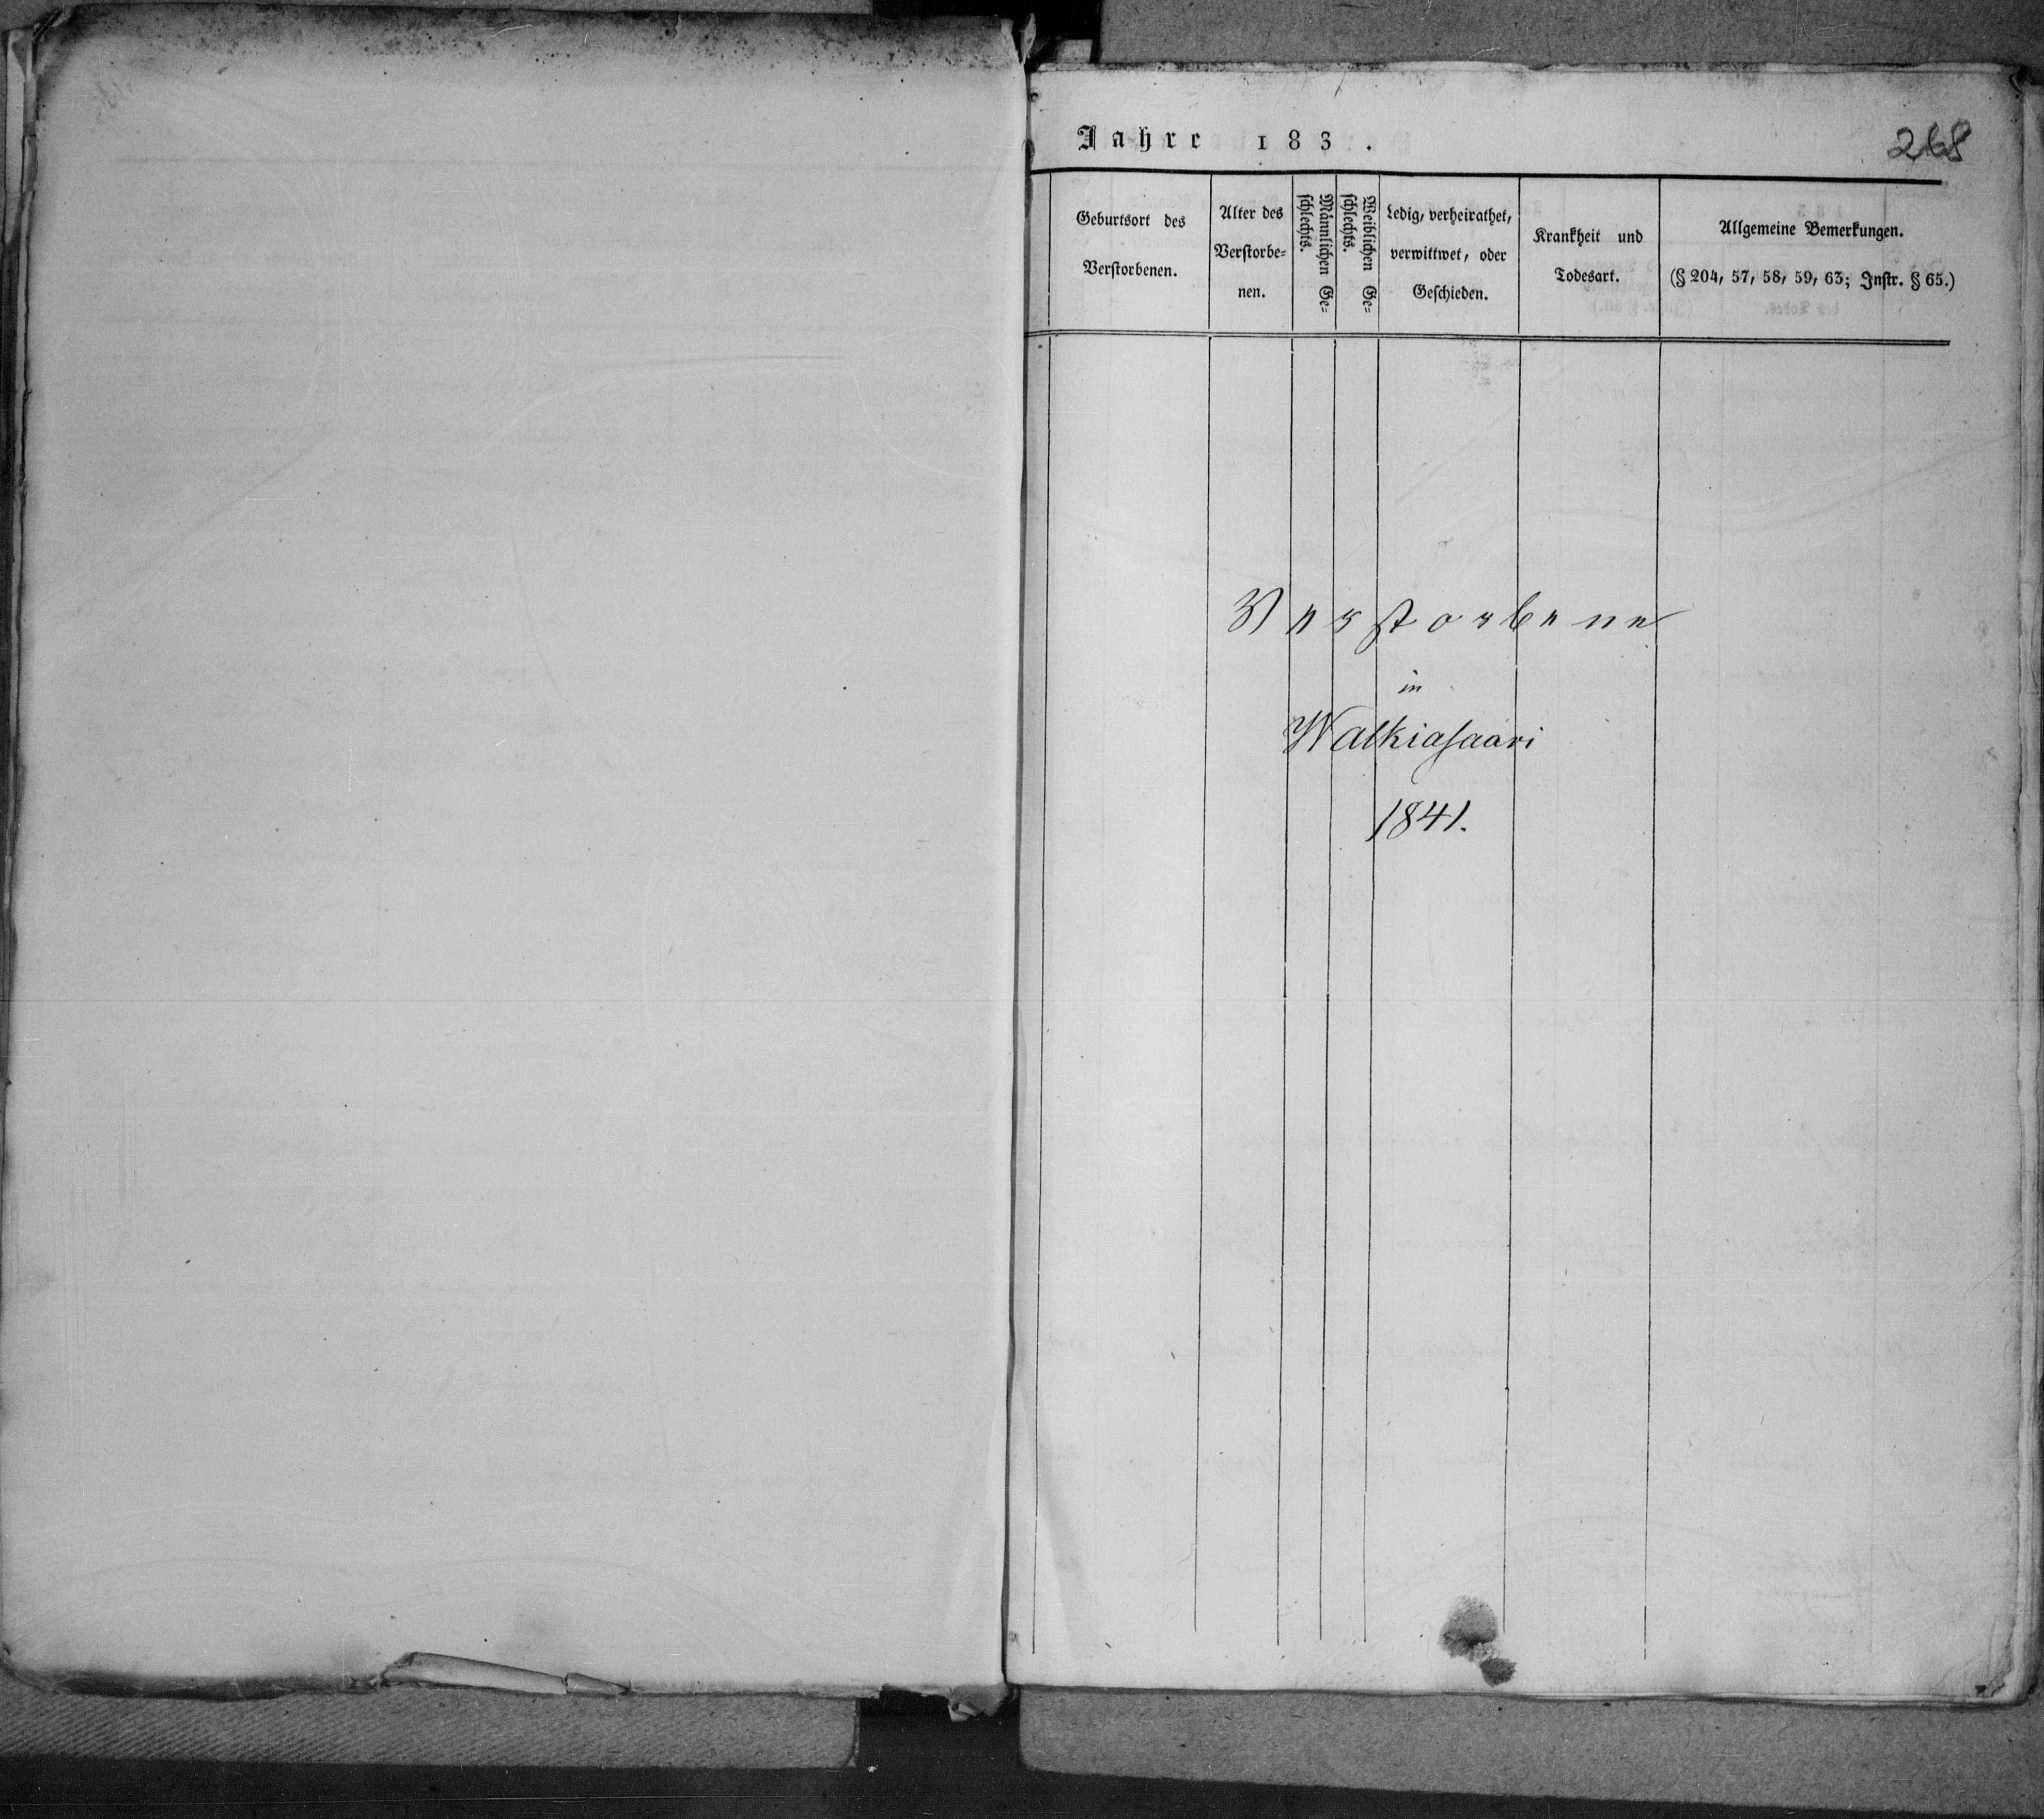 Jahre 183 .
268
Geburtsort des
Verstorbenen.
Alter des
Verstorbe=
nen.
Männlichen Ge=
schlechts.
Weiblichen Ge=
schlechts.
Ledig, verheirathet,
verwittwet, oder
Geschieden.
Krankheit und
Todesart.
Allgemeine Bemerkungen.
(§ 204, 57, 58, 59, 63; Instr. § 65.)
Verstorbene
in
Walkiasaari
1841.